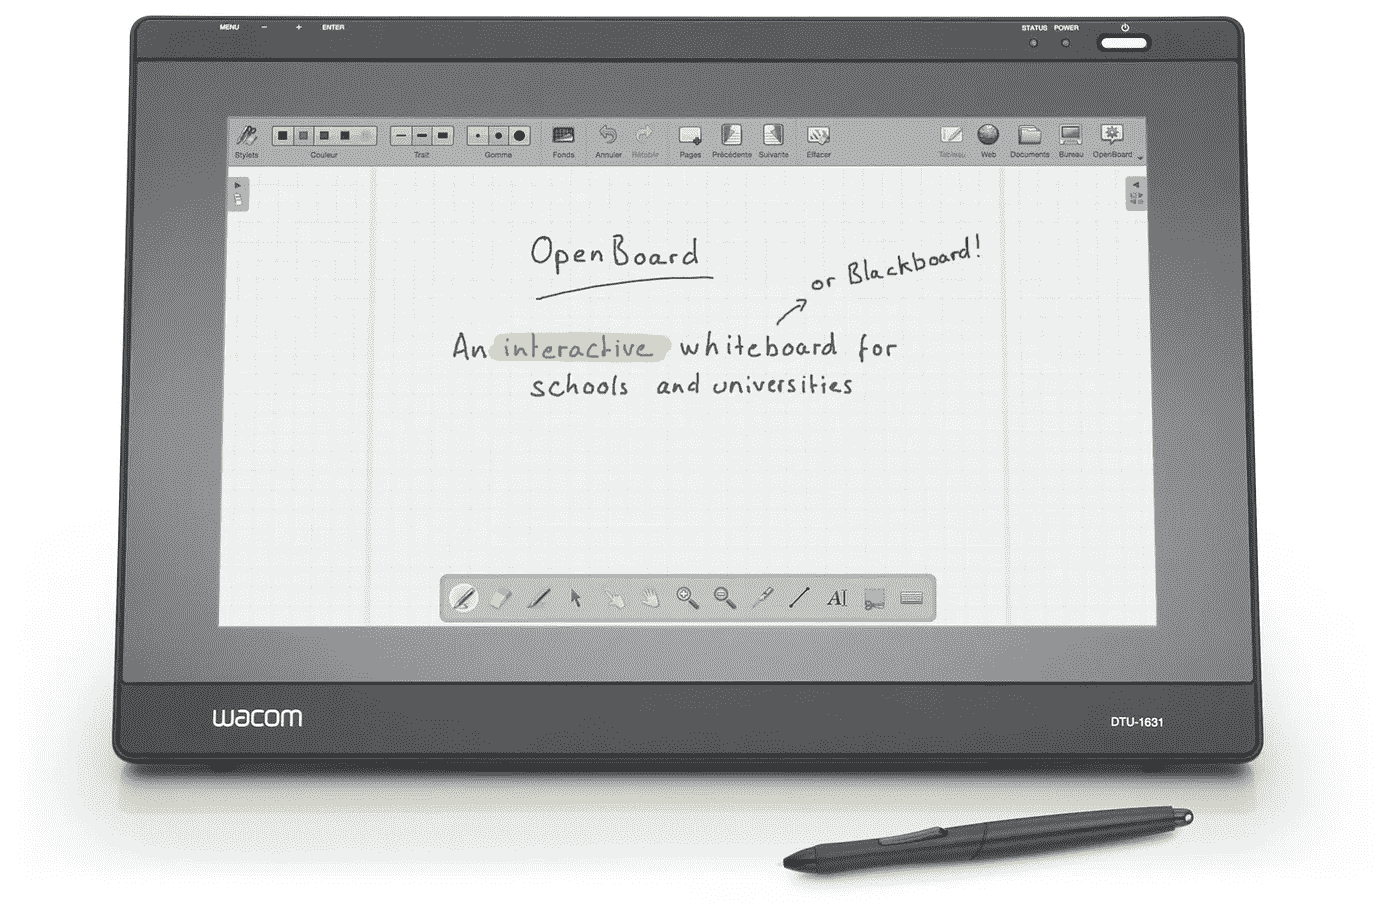 MENU − + ENTER STATUS POWER
Stylets Couleur Trait Gomme Fonds Annuler Rétablir Pages Précédente Suivante Effacer Tableau Web Documents Bureau OpenBoard
OpenBoard
or Blackboard!
An interactive whiteboard for
schools and universities
AI
wacom DTU-1631